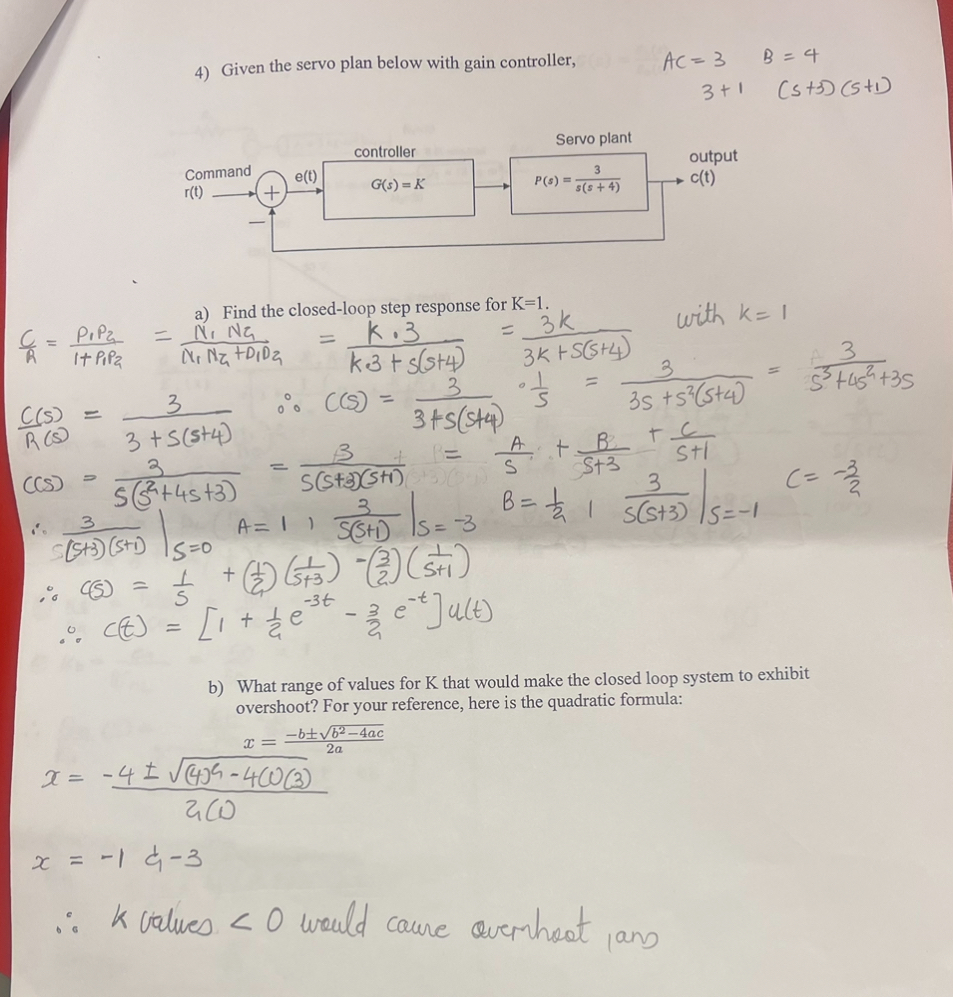 4) Given the servo plan below with gain controller,
AC = 3 B = 4
3 + 1 (s+3)(s+1)
Servo plant
controller
Command
r(t)
+
−
e(t)
G(s) = K
P(s) = 3 / s(s + 4)
output
c(t)
a) Find the closed-loop step response for K=1.
C/R = P1P2 / 1+P1P2 = N1 N2 / N1 N2 + D1D2 = K.3 / k.3 + s(s+4) = 3k / 3k + s(s+4) with k = 1
C(s)/R(s) = 3 / 3 + s(s+4) ∴ C(s) = 3 / 3+s(s+4) · 1/s = 3 / 3s + s²(s+4) = 3 / s³+4s²+3s
C(s) = 3 / s(s²+4s+3) = 3 / s(s+3)(s+1) = A/s + B/s+3 + C/s+1
∴ 3 / s(s+3)(s+1) |s=0 A = 1 , 3 / s(s+1) |s=-3 B = 1/2 , 3 / s(s+3) |s=-1 C = -3/2
∴ C(s) = 1/s + (1/2)(1/s+3) - (3/2)(1/s+1)
∴ c(t) = [1 + 1/2 e^-3t - 3/2 e^-t] u(t)
b) What range of values for K that would make the closed loop system to exhibit
overshoot? For your reference, here is the quadratic formula:
x = −b±√b²−4ac / 2a
x = -4 ± √(4)² - 4(1)(3) / 2(1)
x = -1 & -3
∴ k values < 0 would cause overshoot , ans